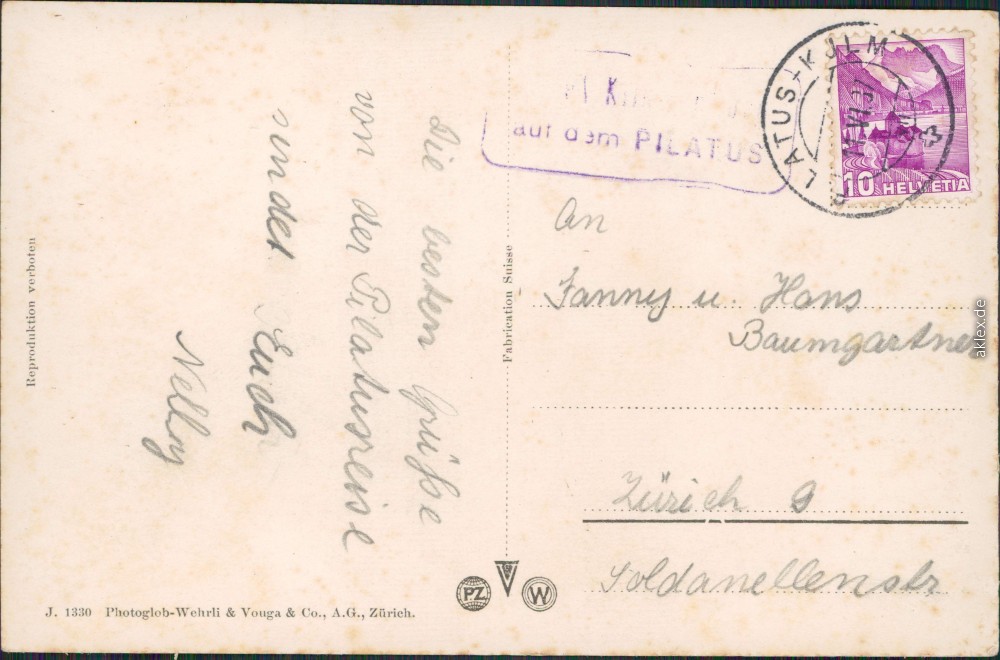 Die besten Grüße
von der Pilatusreise
sendet Euch
Nelly
auf dem PILATUS
PILATUS-KULM
VI.37
10 HELVETIA
An
Fanny u. Hans
Baumgartner
Zürich 9
Soldanellenstr
Reproduktion verboten
Fabrication Suisse
PZ
W
J. 1330 Photoglob-Wehrli & Vouga & Co., A.G., Zürich.
aklex.de